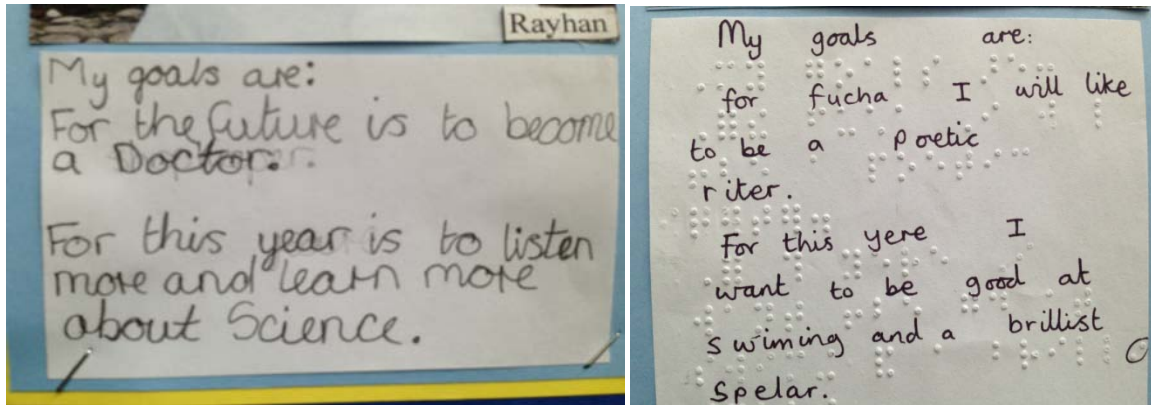 Rayhan
My goals are:
For the future is to become
a Doctor.
For this year is to listen
more and learn more
about Science.
My goals are:
for fucha I will like
to be a Poetic
riter.
For this yere I
want to be good at
swiming and a brillist
Spelar.